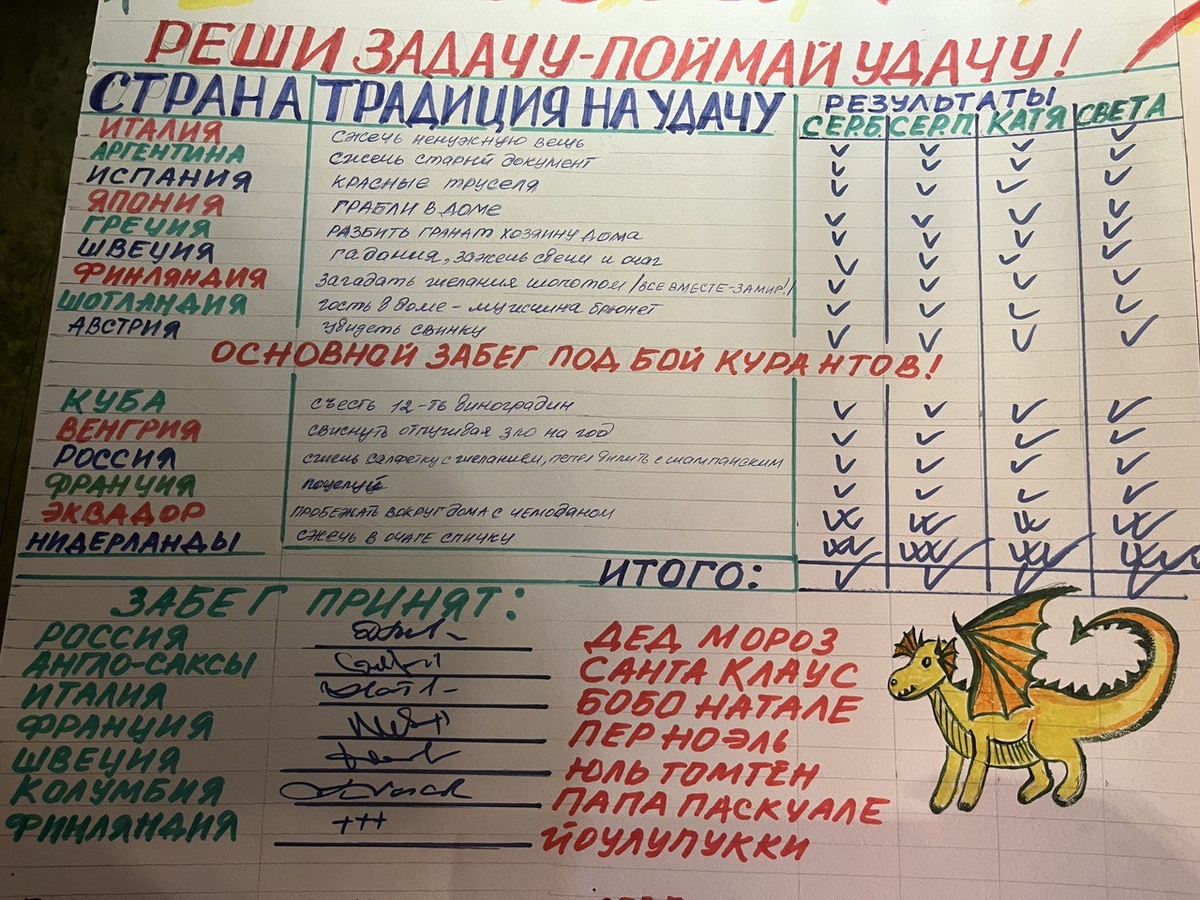 РЕШИ ЗАДАЧУ-ПОЙМАЙ УДАЧУ!
СТРАНА ТРАДИЦИЯ НА УДАЧУ РЕЗУЛЬТАТЫ
СЕР.Б. СЕР.П КАТЯ СВЕТА
ИТАЛИЯ сжечь ненужную вещь
АРГЕНТИНА сжечь старый документ
ИСПАНИЯ КРАСНЫЕ труселя
ЯПОНИЯ ГРАБЛИ В ДОМЕ
ГРЕЦИЯ РАЗБИТЬ ГРАНАТ ХОЗЯИНУ ДОМА
ШВЕЦИЯ гадания, зажечь свечи и очаг
ФИНЛЯНДИЯ загадать желания шопотом /ВСЕ ВМЕСТЕ-ЗАМИР!/
ШОТЛАНДИЯ гость в доме - мужчина брюнет
АВСТРИЯ увидеть свинку
ОСНОВНОЙ ЗАБЕГ ПОД БОЙ КУРАНТОВ!
КУБА съесть 12-ть виноградин
ВЕНГРИЯ свиснуть отпугивая зло на год
РОССИЯ сжечь салфетку с желанием, пепел выпить с шампанским
ФРАНЦИЯ поцелуй
ЭКВАДОР ПРОБЕЖАТЬ ВОКРУГ ДОМА С ЧЕМОДАНОМ
НИДЕРЛАНДЫ сжечь в очаге спичку
ИТОГО:
ЗАБЕГ ПРИНЯТ:
РОССИЯ ДЕД МОРОЗ
АНГЛО-САКСЫ САНТА КЛАУС
ИТАЛИЯ БОБО НАТАЛЕ
ФРАНЦИЯ ПЕР НОЭЛЬ
ШВЕЦИЯ ЮЛЬ ТОМТЕН
КОЛУМБИЯ ПАПА ПАСКУАЛЕ
ФИНЛЯНДИЯ +++ ЙОУЛУПУККИ